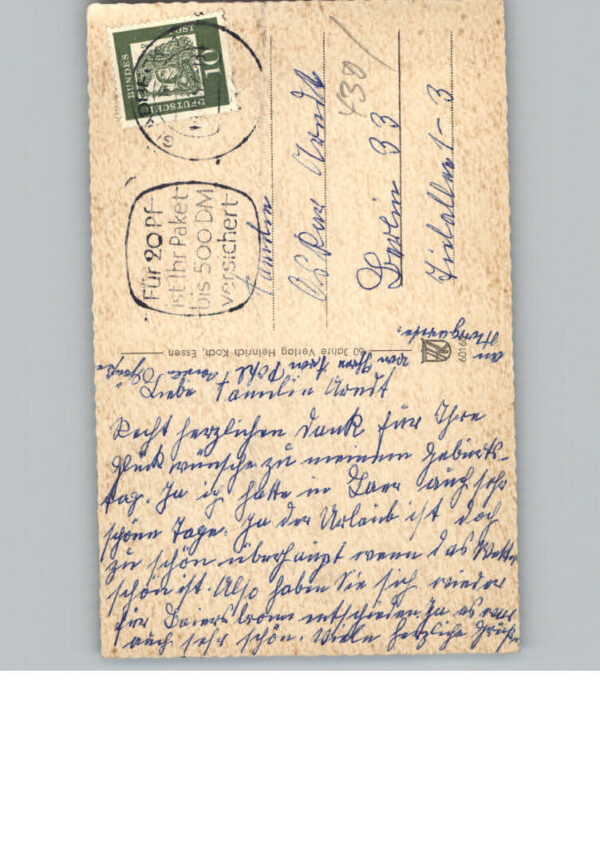 Liebe Familie Arndt
Recht herzlichen Dank für Ihre
Glückwünsche zu meinem Geburts-
tag. Ja ich hatte in Laer auch sehr
schöne Tage. Ja der Urlaub ist doch
zu schön überhaupt wenn das Wetter
schön ist. Also haben Sie sich wieder
für Baiersbronn entschieden. Ja es war
auch sehr schön. Viele herzliche Grüße
von Ihrer Frau Pohl
an
60 Jahre Verlag Heinrich Koch, Essen
60169
Familie
Arndt
Berlin 33
1-3
439/
Für 20 Pf
ist Ihr Paket
bis 500 DM
versichert
DEUTSCHE
BUNDESPOST
10